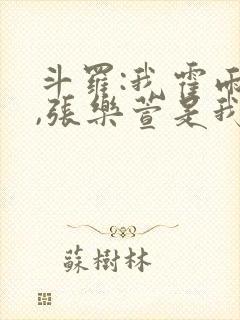 斗羅:我霍雨
,張樂萱是我
蘇樹林